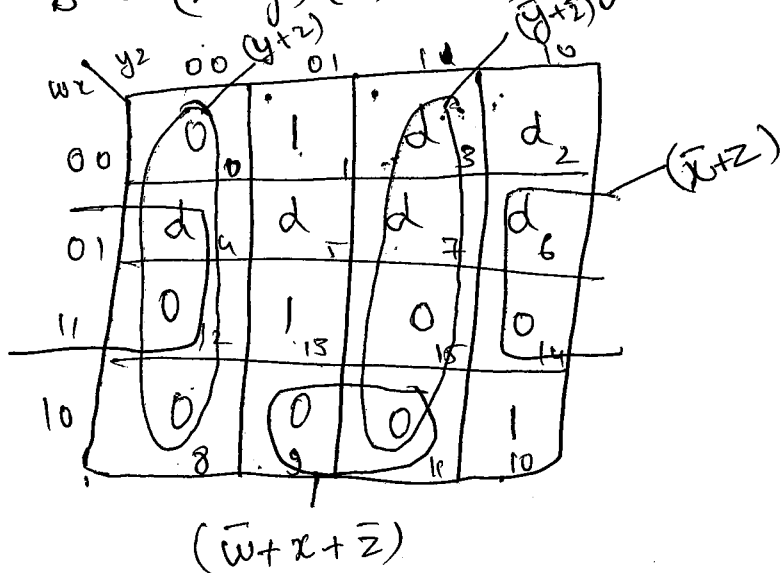 (y+z)
wx yz 00 01 11 10
00 0 0 1 1 d 3 d 2
(x̄+z)
01 d 4 d 5 d 7 d 6
11 0 12 1 13 0 15 0 14
10 0 8 0 9 0 11 1 10
(w̄+x+z̄)